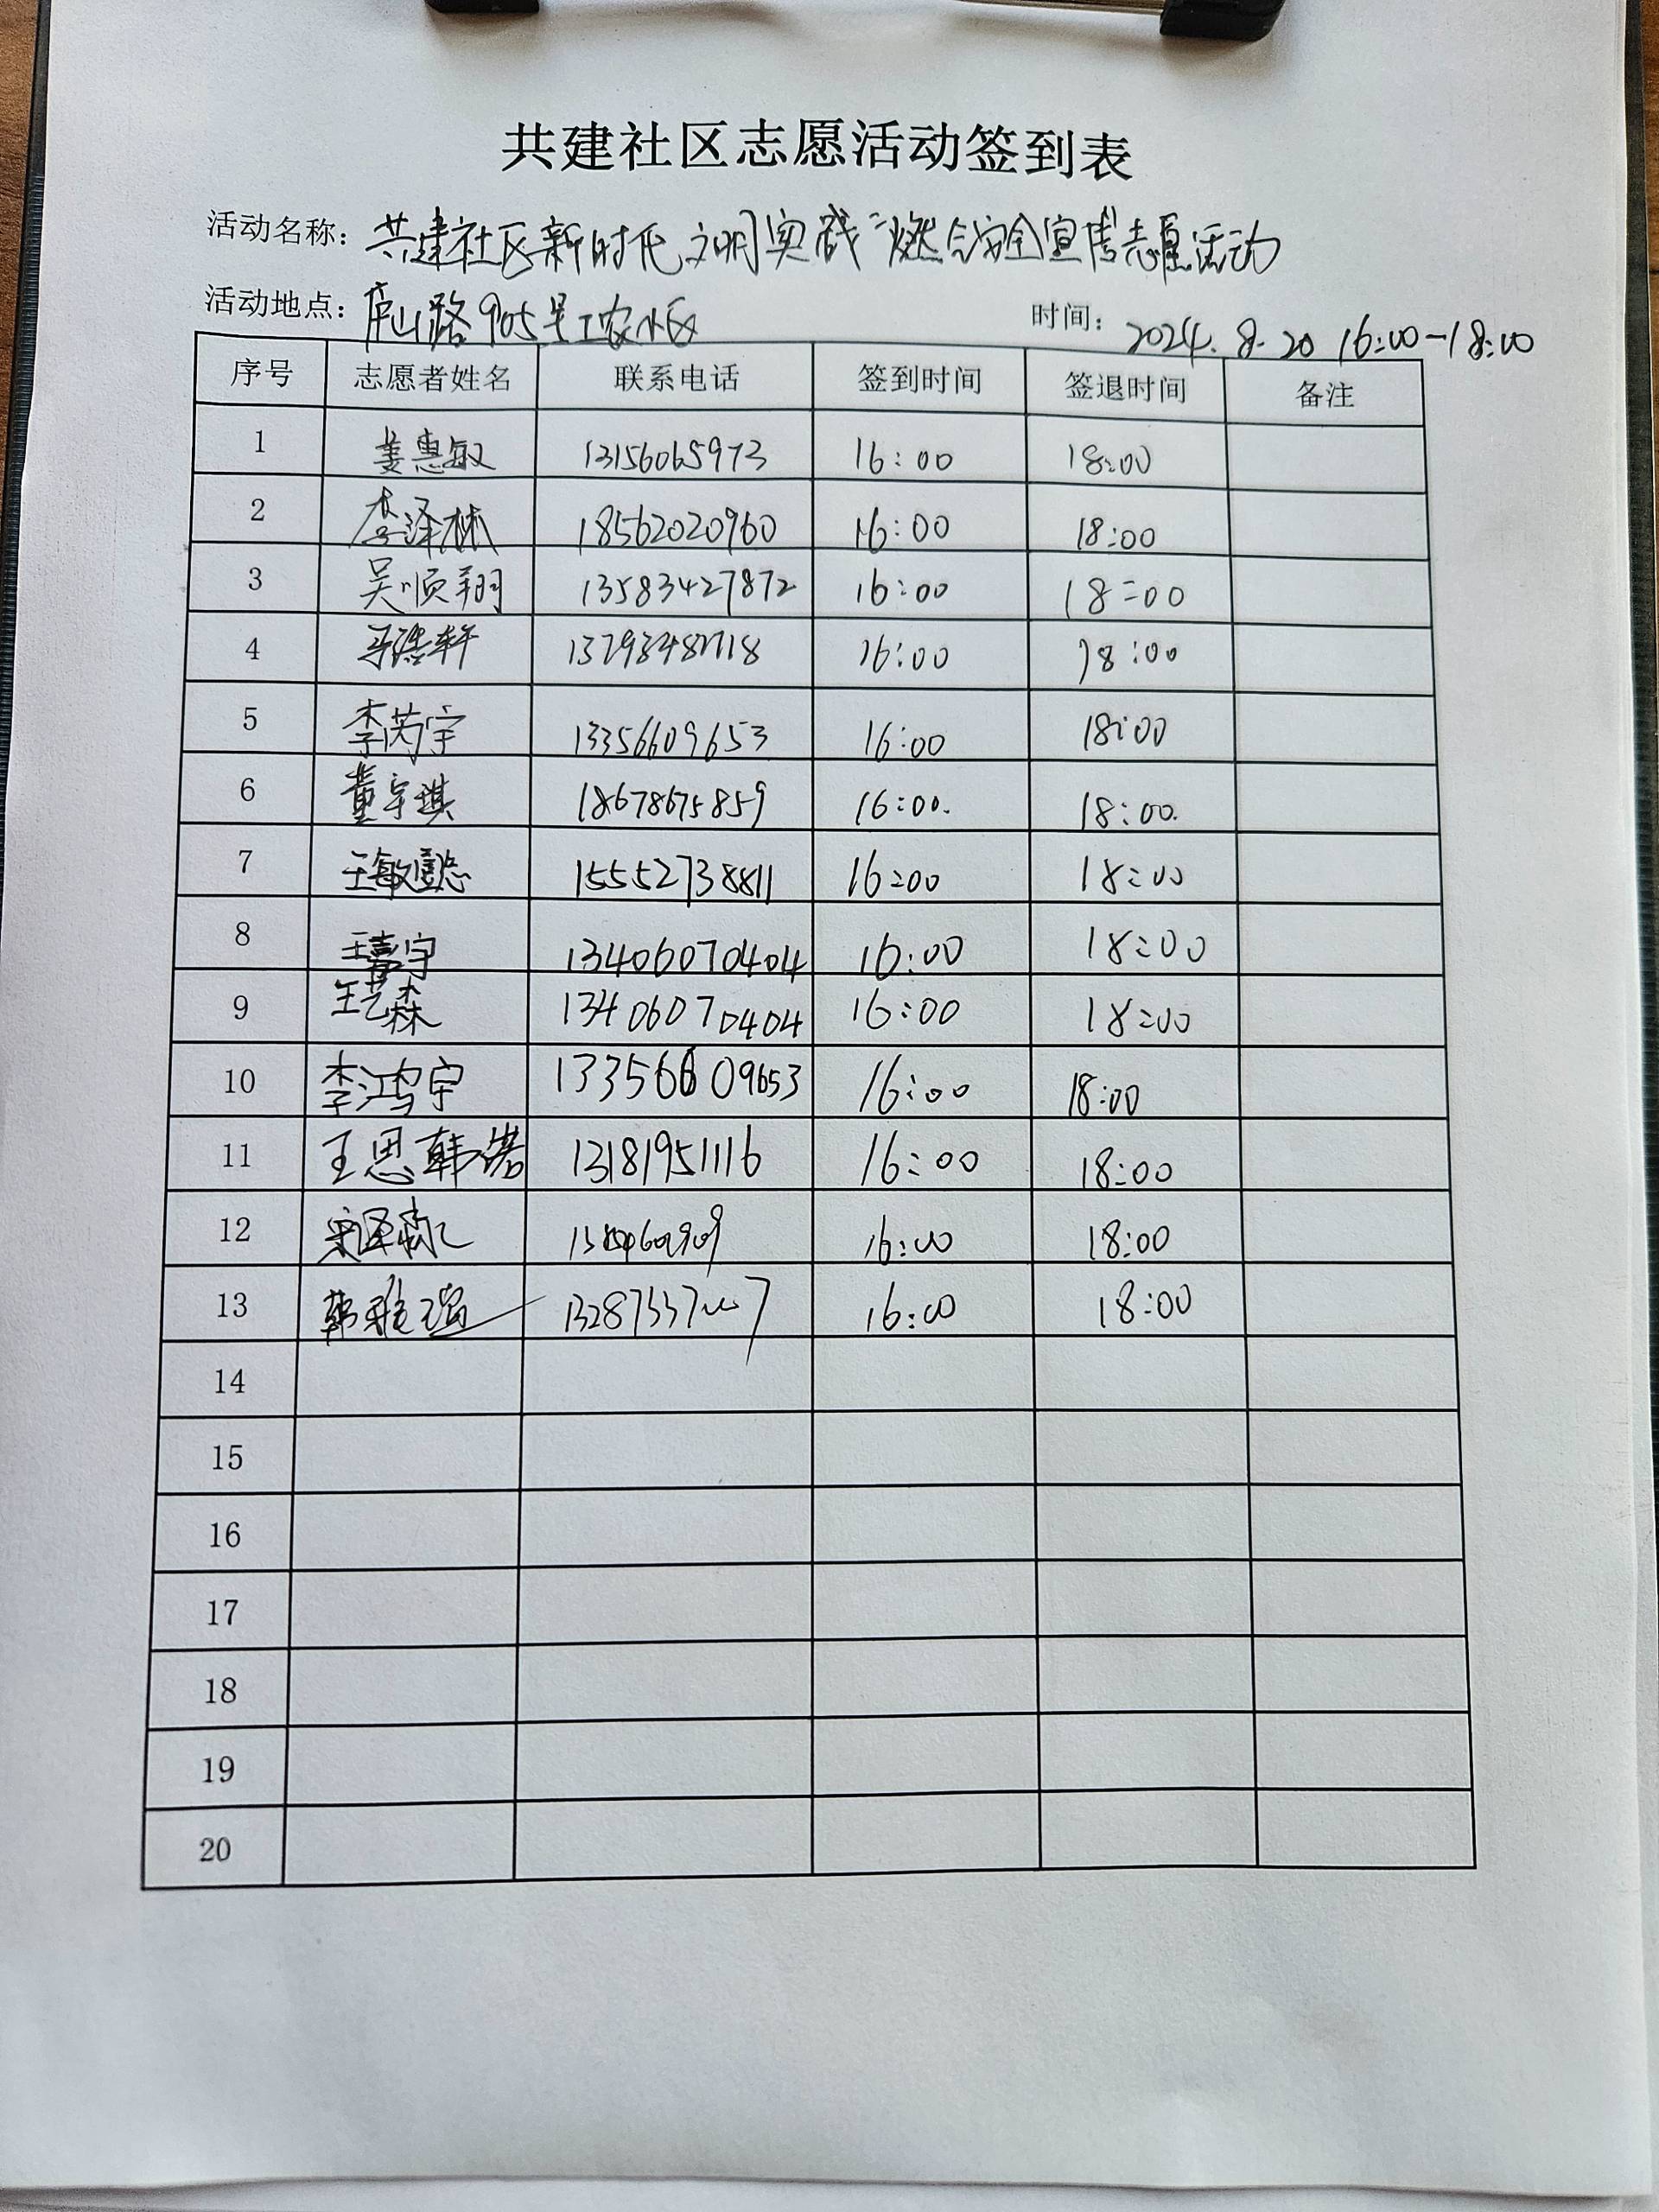 共建社区志愿活动签到表
活动名称: 共建社区新时代文明实践“燃气安全宣传志愿活动
活动地点: 庐山路905号工农小区 时间: 2024.8.20 16:00-18:00
序号 志愿者姓名 联系电话 签到时间 签退时间 备注
1 姜惠敏 13156065973 16:00 18:00
2 李泽林 18562020960 16:00 18:00
3 吴顺翔 13583427872 16:00 18:00
4 浩轩 16:00 18:00
5 李芮宇 13356609653 16:00 18:00
6 董宇琪 18678675859 16:00. 18:00.
7 王敏 15552738811 16:00 18:00
8 王嘉宇 13406070404 16:00 18:00
9 王艺森 13406070404 16:00 18:00
10 李鸿宇 13356609653 16:00 18:00
11 王思韩诺 13181951116 16:00 18:00
12 16:00 18:00
13 韩雅 16:00 18:00
14
15
16
17
18
19
20